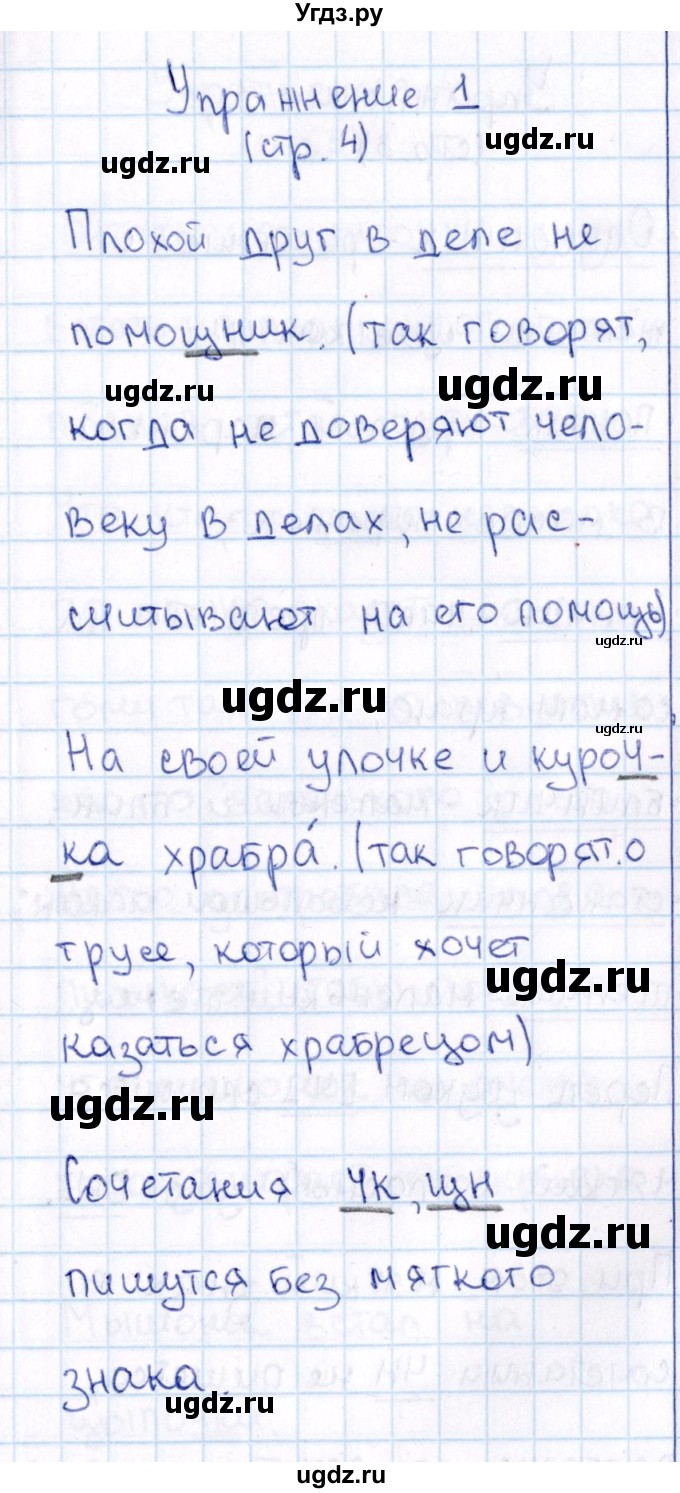 Угдз.ру
Упражнение 1
ugdz.ru (стр. 4) ugdz.ru
Плохой друг в деле не
помощник. (так говорят,
ugdz.ru ugdz.ru
когда не доверяют чело-
веку в делах, не рас-
считывают на его помощь)
ugdz.ru
ugdz.ru
На своей улочке и куроч-
ка храбра́. (так говорят о
трусе, который хочет
ugdz.ru
казаться храбрецом)
ugdz.ru
Сочетания чк, щн
ugdz.ru
пишутся без мягкого
знака.
ugdz.ru
ugdz.ru